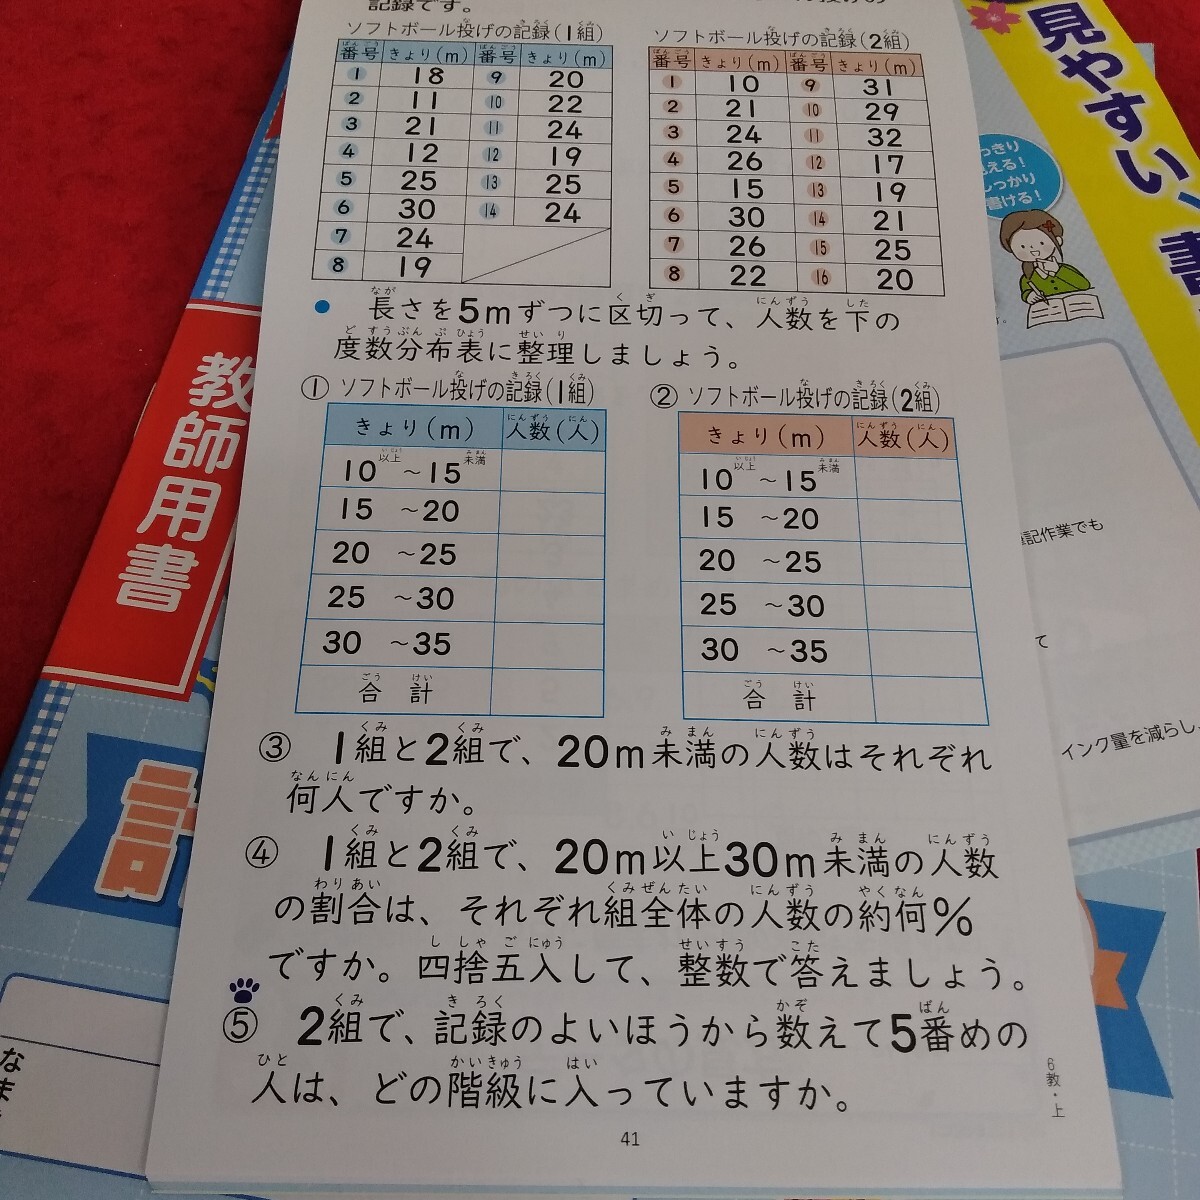 記録です。
ソフトボール投げの記録(1組)
番号 きょり(m) 番号 きょり(m)
1 18 9 20
2 11 10 22
3 21 11 24
4 12 12 19
5 25 13 25
6 30 14 24
7 24
8 19
ソフトボール投げの記録(2組)
番号 きょり(m) 番号 きょり(m)
1 10 9 31
2 21 10 29
3 24 11 32
4 26 12 17
5 15 13 19
6 30 14 21
7 26 15 25
8 22 16 20
● 長さを5mずつに区切って、人数を下の
度数分布表に整理しましょう。
① ソフトボール投げの記録(1組)
きょり(m) 人数(人)
10以上 ～15未満
15 ～20
20 ～25
25 ～30
30 ～35
合計
② ソフトボール投げの記録(2組)
きょり(m) 人数(人)
10以上 ～15未満
15 ～20
20 ～25
25 ～30
30 ～35
合計
③ 1組と2組で、20m未満の人数はそれぞれ
何人ですか。
④ 1組と2組で、20m以上30m未満の人数
の割合は、それぞれ組全体の人数の約何%
ですか。四捨五入して、整数で答えましょう。
⑤ 2組で、記録のよいほうから数えて5番めの
人は、どの階級に入っていますか。
6教・上
41
教師用書
計
なま
見やすい、書
っきり
える!
しっかり
書ける!
記作業でも
て
インク量を減らし、